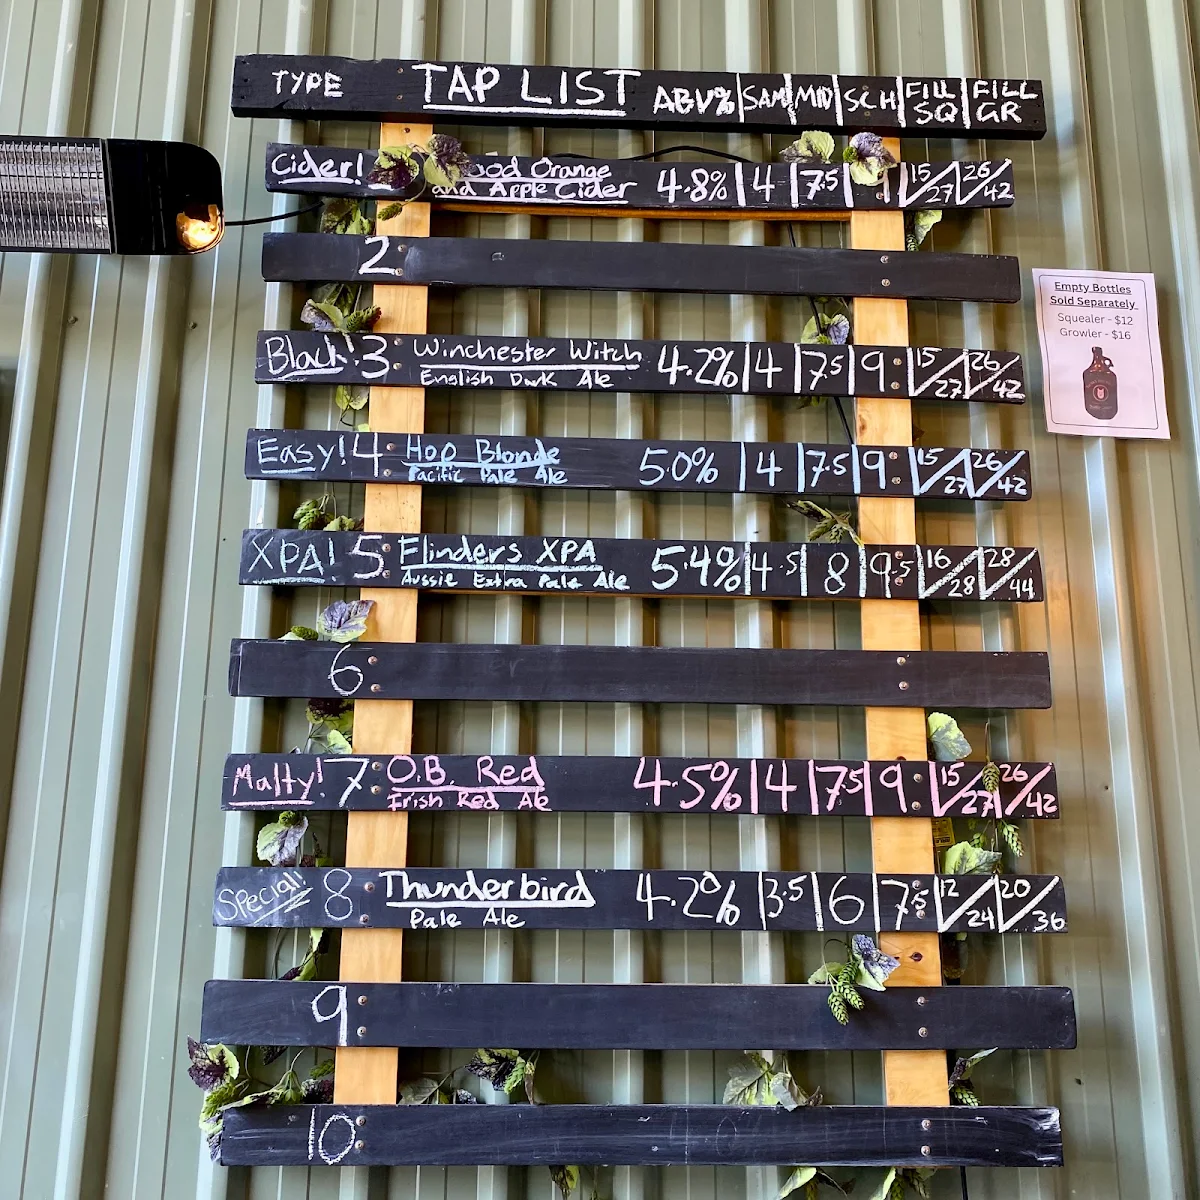 TYPE TAP LIST ABV% SAM MID SCH FILL SQ FILL GR
Cider! ood Orange
and Apple Cider 4.8% 4 7.5 15/27 26/42
2
Black 3 Winchester Witch 4.2% 4 7.5 9 15/27 26/42
English Dark Ale
Easy! 4 Hop Blonde 5.0% 4 7.5 9 15/27 26/42
Pacific Pale Ale
XPA! 5 Flinders XPA 5.4% 4.5 8 9.5 16/28 28/44
Aussie Extra Pale Ale
6
Malty! 7 O.B. Red 4.5% 4 7.5 9 15/27 26/42
Irish Red Ale
Special! 8 Thunderbird 4.2% 3.5 6 7.5 12/24 20/36
Pale Ale
9
10
Empty Bottles
Sold Separately
Squealer - $12
Growler - $16